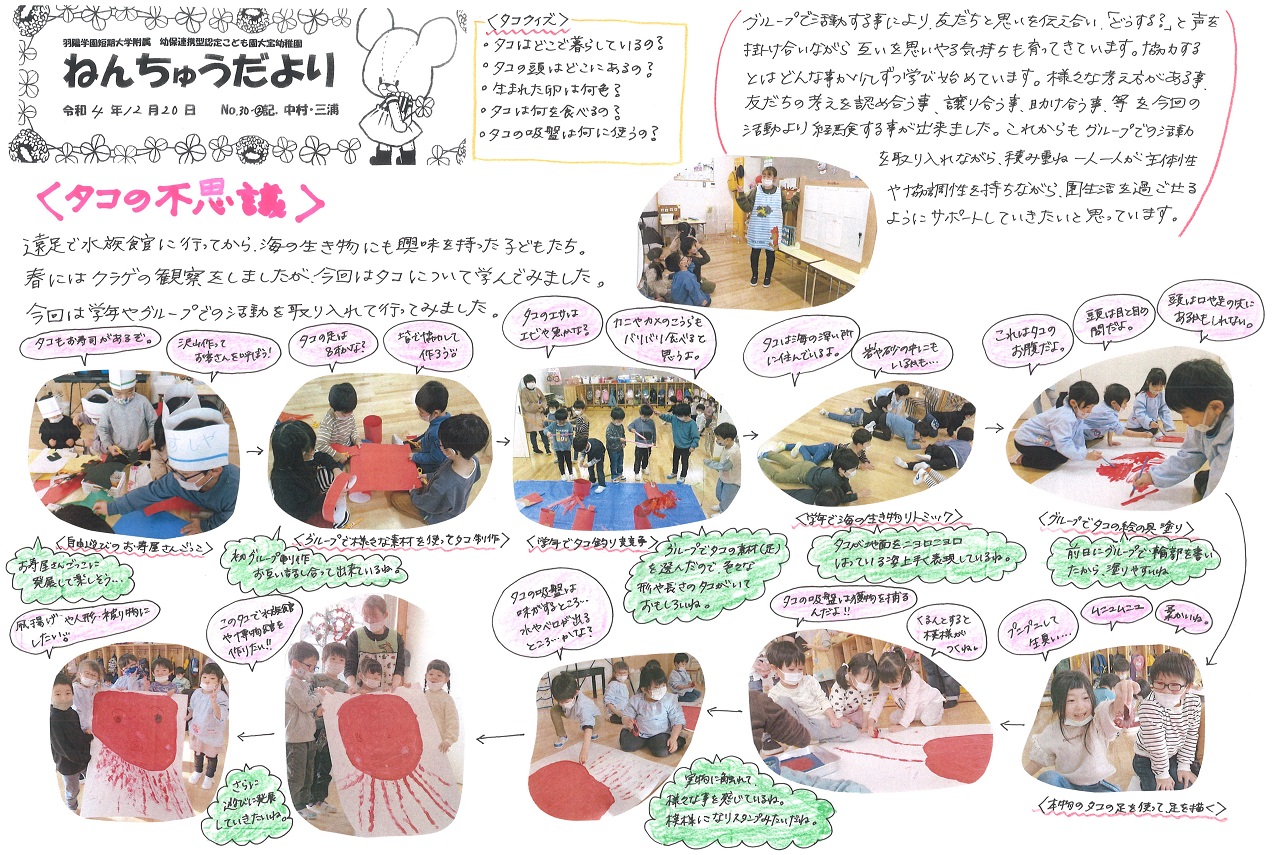 羽陽学園短期大学附属 幼保連携型認定こども園大宝幼稚園
ねんちゅうだより
令和4年12月20日 No.30-@記.中村・三浦
<タコクイズ>
・タコはどこで暮らしているの?
・タコの頭はどこにあるの?
・生まれた卵は何色?
・タコは何を食べるの?
・タコの吸盤は何に使うの?
グループで活動する事により、友だちと思いを伝え合い、「どうする?」と声を
掛け合いながら互いを思いやる気持ちも育ってきています。協力する
とはどんな事か少しずつ学び始めています。様々な考え方がある事、
友だちの考えを認め合う事、譲り合う事、助け合う事、等を今回の
活動より経験する事が出来ました。これからもグループでの活動
を取り入れながら、積み重ね一人一人が主体性
や協調性を持ちながら、園生活を過ごせる
ようにサポートしていきたいと思っています。
<タコの不思議>
遠足で水族館に行ってから、海の生き物にも興味を持った子どもたち。
春にはクラゲの観察をしましたが、今回はタコについて学んでみました。
今回は学年やグループでの活動を取り入れて行ってみました。
タコもお寿司があるぞ。
沢山作って
お客さんを呼ぼう!
タコの足は
8本かな?
皆で協力して
作ろう
タコのエサは
エビや魚かなぁ
カニやカメのこうらも
バリバリ食べると
思うよ。
タコは海の深い所
に住んでいるよ。
岩や砂の中にも
いるかも…
これはタコの
お腹だよ。
頭は目と目の
間だよ。
頭は口や足の近くに
あるかもしれない。
すしや
<自由遊びのお寿屋さんごっこ>
お寿屋さんごっこに
発展して楽しそう…
<グループで様々な素材を使ってタコ制作>
初グループ制作
お互い話し合って出来ているね。
<学年でタコ釣り>
グループでタコの素材(足)
を選んだので、色々な
形や長さのタコがいて
おもしろいね。
<学年で海の生き物リトミック>
タコが地面をニョロニョロ
はっている姿上手く表現しているね。
<グループでタコの絵の具塗り>
前日にグループで輪郭を書い
たから、塗りやすいね
凧揚げや人形・被り物に
したい。
このタコで水族館
や博物館を
作りたい!!
タコの吸盤は
味がするところ…
水やベロが出る
ところ…かな?
タコの吸盤は獲物を捕る
んだよ!!
くるんとすると
模様が
つくね。
プニプニして
生臭い…
ムニュムニュ
柔かいね。
さらに
遊びに発展
していきたいね。
実物に触れて
様々な事を感じているね。
模様になりスタンプみたいだね。
<本物のタコの足を使って、足を描く>